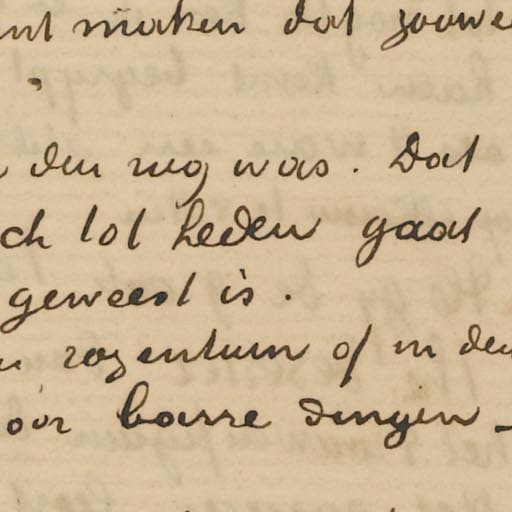 maken dat zoowe
den nog was. Dat
ch tot heden gaat
geweest is.
rozentuin of in den
oor barre dingen -